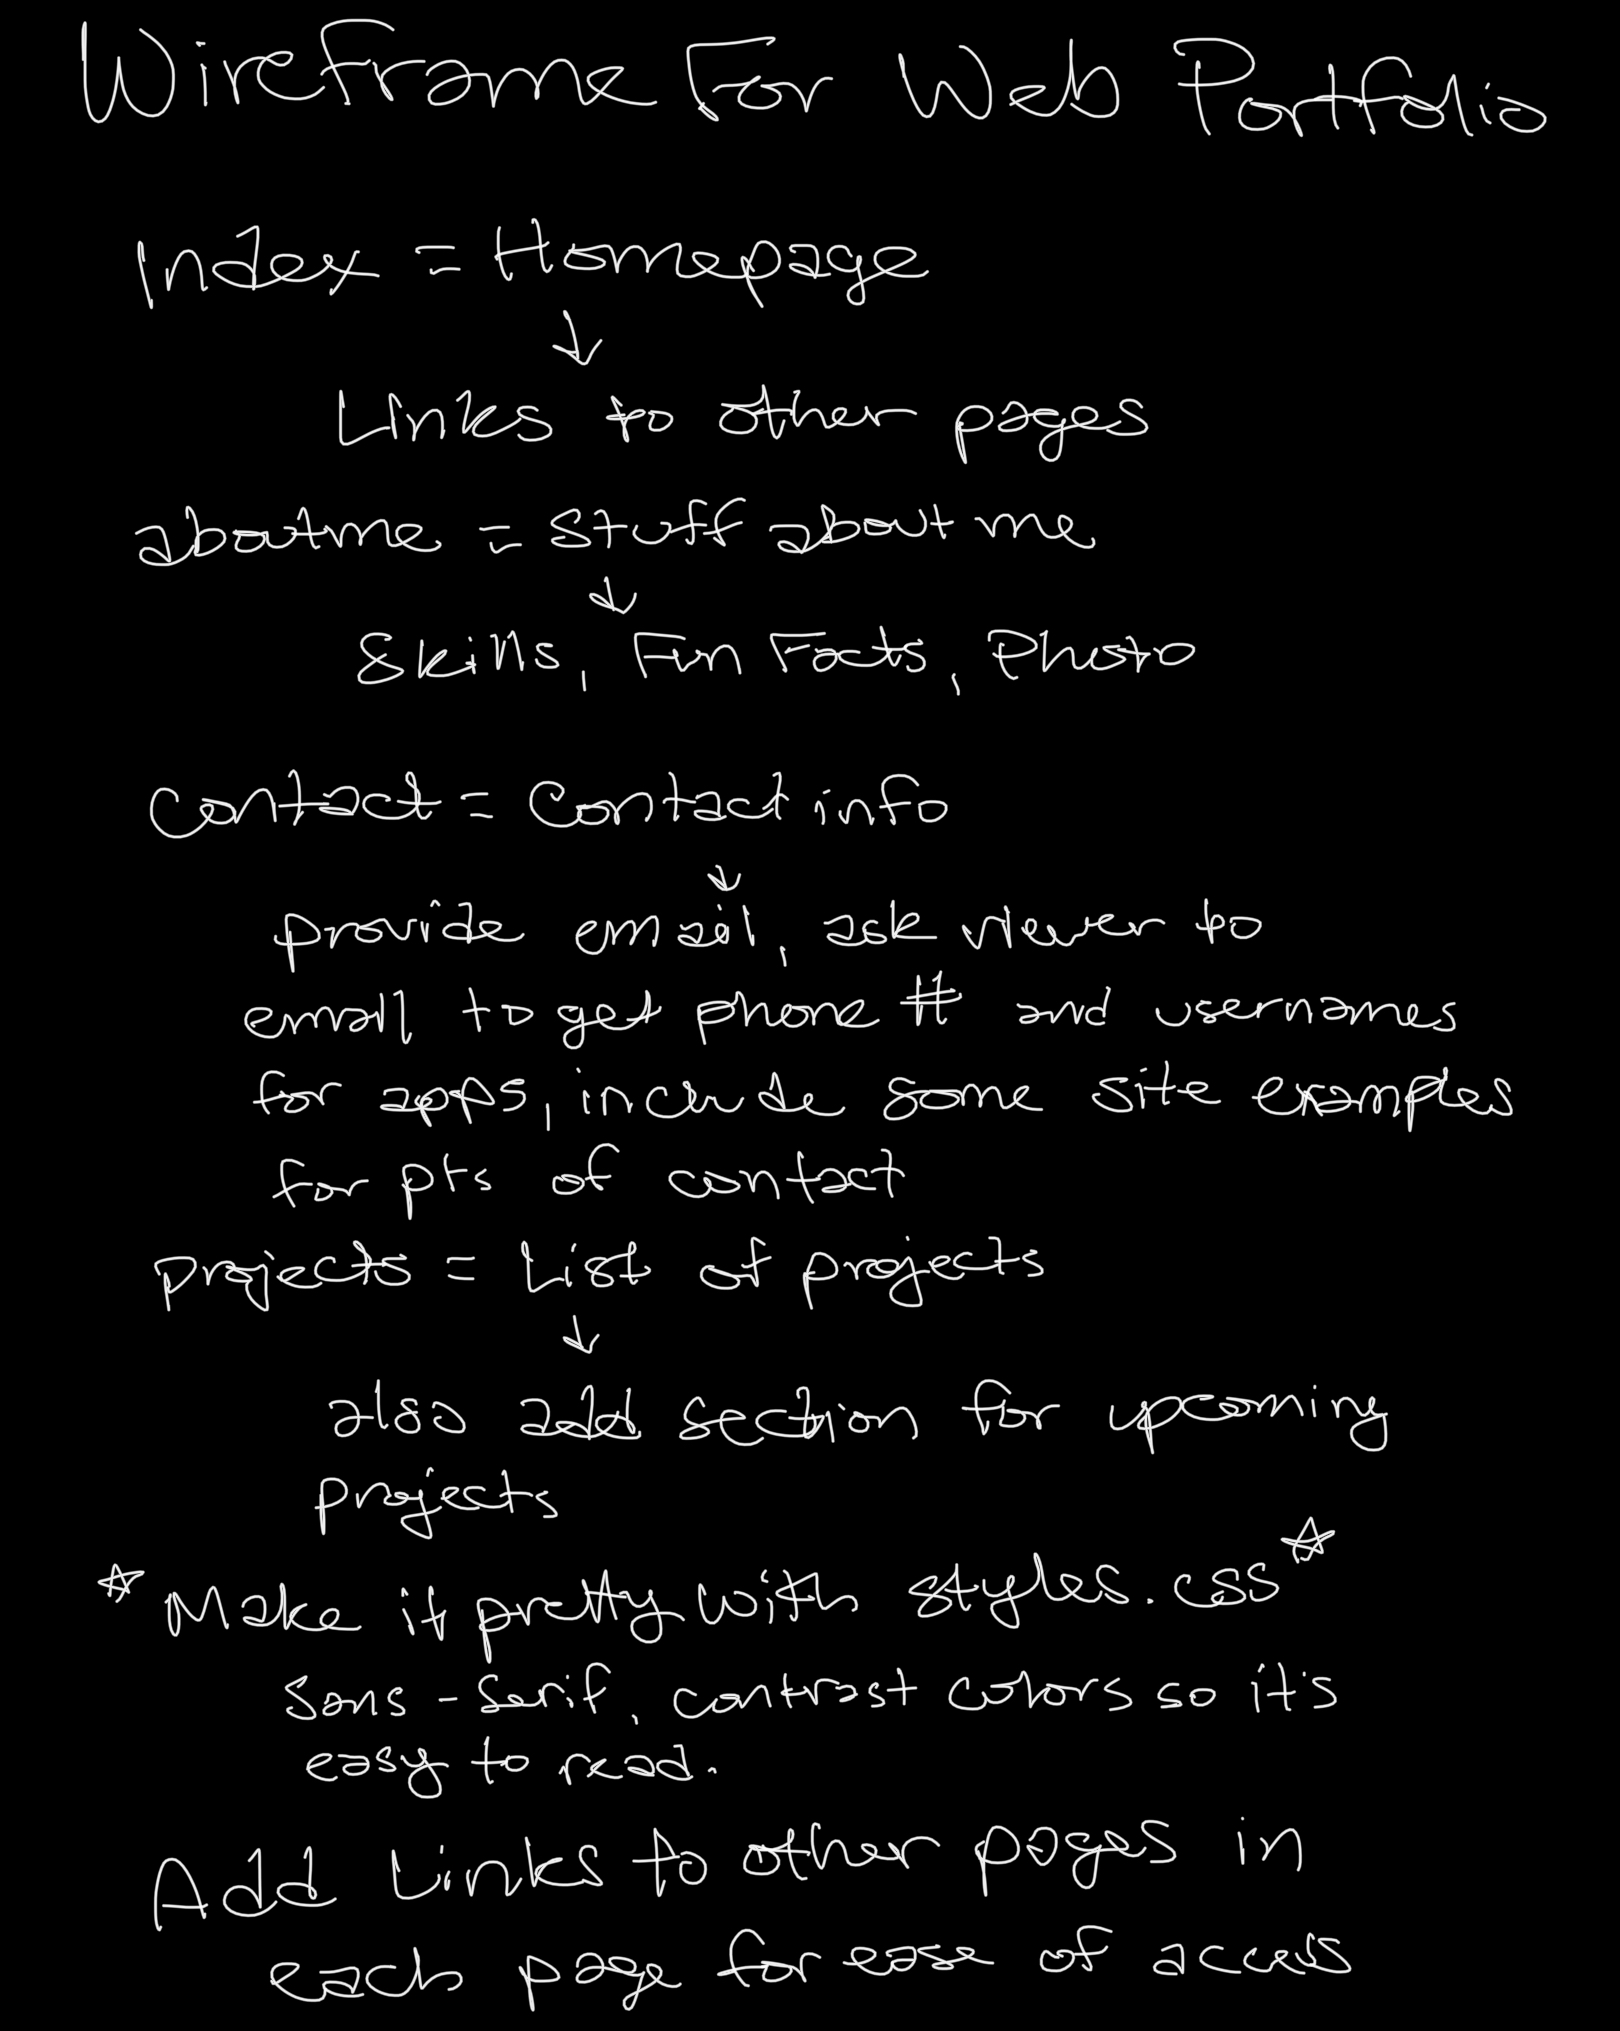 Wireframe For Web Portfolio
Index = Homepage
↓
Links to other pages
aboutme = Stuff about me
↓
Skills, Fun Facts, Photo
contact = Contact info
↓
provide email, ask viewer to
email to get phone # and usernames
for apps, include some site examples
for pts of contact
projects = List of projects
↓
also add section for upcoming
projects
☆ Make it pretty with styles.css ☆
Sans-Serif, contrast colors so it's
easy to read.
Add Links to other pages in
each page for ease of access